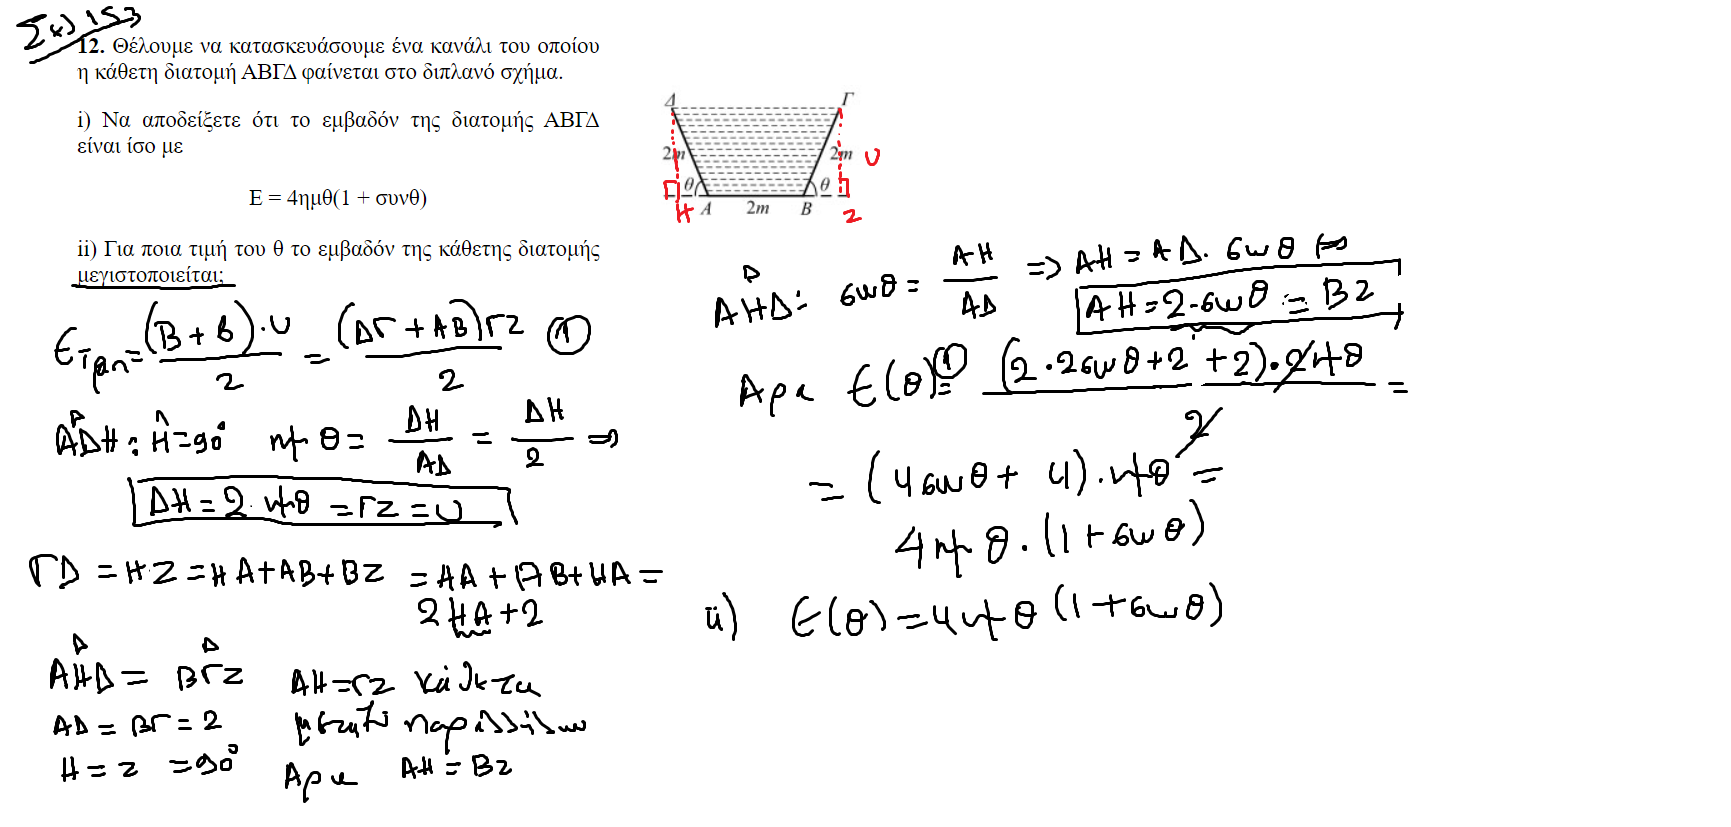 Σελ 153
12. Θέλουμε να κατασκευάσουμε ένα κανάλι του οποίου
η κάθετη διατομή ΑΒΓΔ φαίνεται στο διπλανό σχήμα.
i) Να αποδείξετε ότι το εμβαδόν της διατομής ΑΒΓΔ
είναι ίσο με
Ε = 4ημθ(1 + συνθ)
ii) Για ποια τιμή του θ το εμβαδόν της κάθετης διατομής
μεγιστοποιείται;
Δ Γ
2m 2m υ
θ θ
Η Α 2m Β Ζ
Ετραπ = (Β + β) · υ / 2 = (ΔΓ + ΑΒ) ΓΖ / 2 (1)
ΑΔΗ : Η = 90° ημθ = ΔΗ / ΑΔ = ΔΗ / 2 =>
ΔΗ = 2 ημθ = ΓΖ = υ
ΓΔ = ΗΖ = ΗΑ + ΑΒ + ΒΖ = ΗΑ + ΑΒ + ΗΑ =
2ΗΑ + 2
ΑΗΔ = ΒΓΖ
ΑΔ = ΒΓ = 2
Η = Ζ = 90°
ΔΗ = ΓΖ κάθετα
μεταξύ παραλλήλων
Αρα ΑΗ = ΒΖ
ΑΗΔ : συνθ = ΑΗ / ΑΔ => ΑΗ = ΑΔ · συνθ <=>
ΑΗ = 2 · συνθ = ΒΖ
Αρα Ε(θ) (1) = (2 · 2συνθ + 2 + 2) · 2ημθ / 2 =
= (4συνθ + 4) · ημθ =
4ημθ · (1 + συνθ)
ii) Ε(θ) = 4ημθ (1 + συνθ)